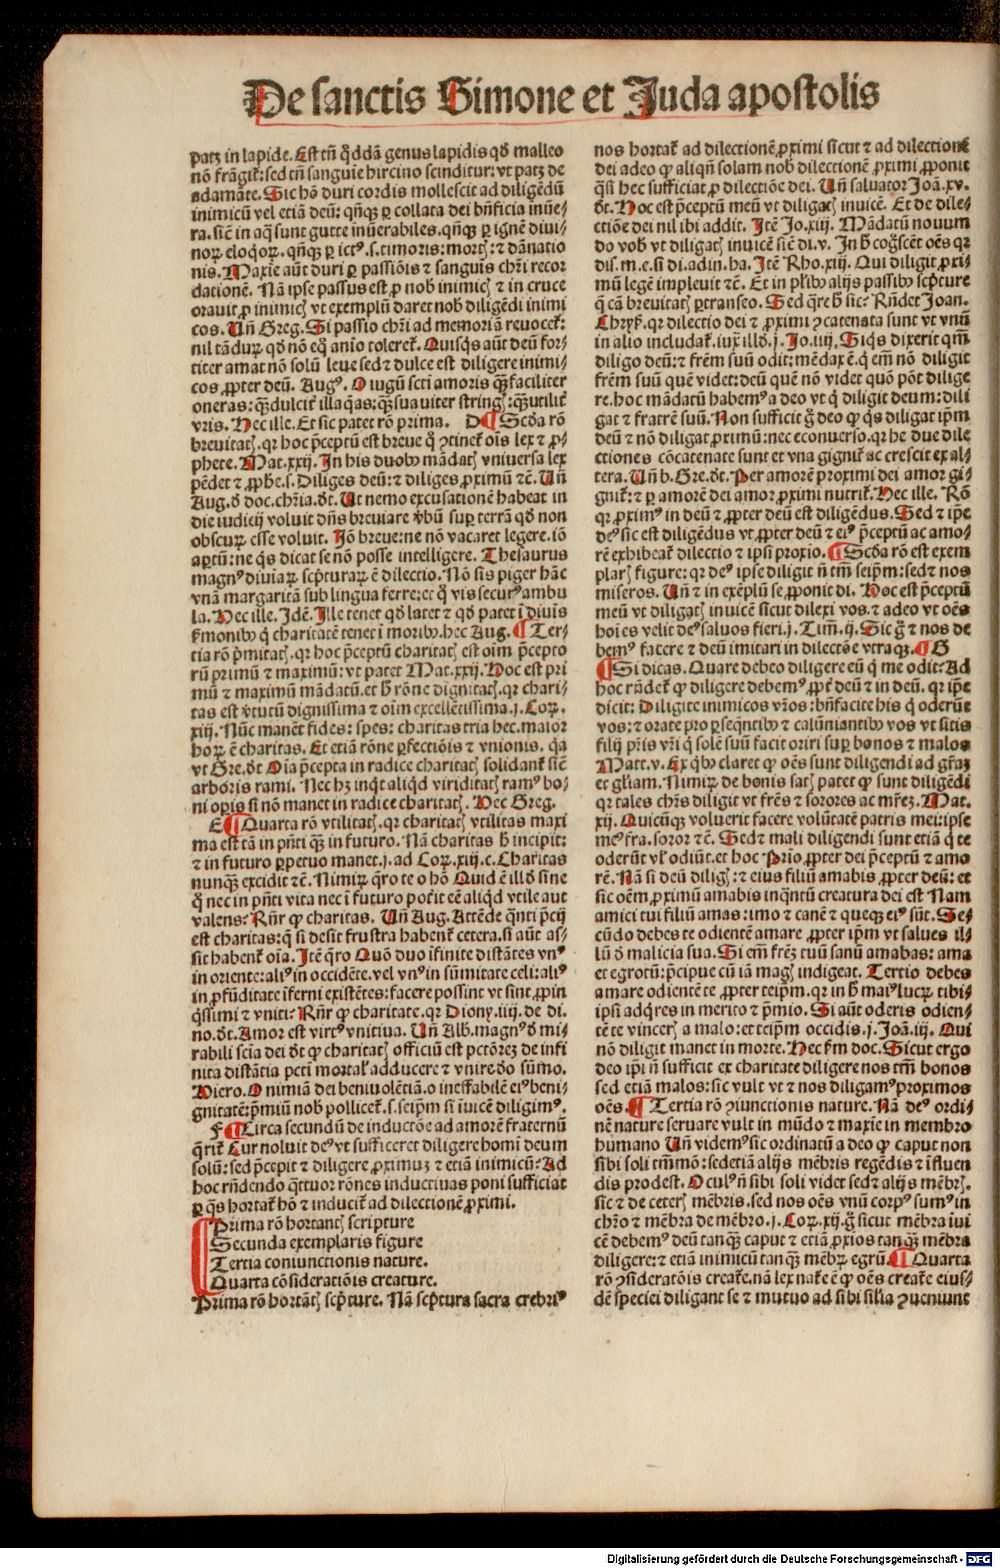 De sanctis Simone et Juda apostolis
patꝫ in lapide. Est tn̄ q̄ddā genus lapidis qď malleo
nō frāgit᷑: sed tn̄ sanguīe hircino scindit᷑ur: vt patꝫ de
adamāte. Sic hō duri cordis mollescit ad diligēdū
inimicū vel etiā deū: qn̄qꝫ ꝑ collata dei bn̄ficia inūe⸗
ra. sic̄ in aq̄ sunt gutte inūerabiles. qn̄qꝫ ꝑ ignē diui⸗
noꝝ eloq̇oꝝ. qn̄qꝫ ꝑ ictꝰ .s. timoris: mortꝭ: ⁊ dānatio
nis. Maxīe aūt duri ꝑ passiōis ⁊ sanguis chr̄i recor
dationē. Nā ipse passus est ꝓ nob inimicꝭ ⁊ in cruce
orauit ꝓ inimicꝭ vt exemplū daret nob diligēdi inimi
cos. Vn̄ Greg. Si passio chr̄i ad memoriā reuocet᷑:
nil tā durꝫ qď nō eq̄ aīo toleret᷑. Quisq̇s aūt deū for⸗
titer amat nō solū leue sed ⁊ dulce est diligere inimi⸗
cos ꝓpter deū. Augꝰ. O iugū scti amoris qꝫ faciliter
oneras: qꝫ dulcit᷑ illaq̄as: qꝫ suauiter stringꝭ: qꝫ vtilit᷑
vris. Hec ille. Et sic patet rō prima. D ¶ Scďa rō
breuitatꝭ. qr hoc p̄ceptū est breue q̄ ꝯtinet᷑ oīs lex ⁊ ꝓ⸗
phete. Mat. xxij. In his duobꝫ mādatꝭ vniuersa lex
pēdet ⁊ ꝓphe. s. Diliges deū: ⁊ diliges ꝓximū ⁊c̄. Vn̄
Aug. ď doc. chr̄ia. ďt. Ut nemo excusationē habeat in
die iudicij voluit dn̄s breuiare v̄bū suꝑ terrā qď non
obscurꝫ esse voluit. Iō breue: ne nō vacaret legere. iō
aꝑtū: ne q̇s dicat se nō posse intelligere. Thesaurus
magnꝰ diuiaꝝ scpturaꝝ ē dilectio. Nō sis piger hāc
vnā margaritā sub lingua ferre: et q̄ vis securꝰ ambu
la. Hec ille. Idē. Ille tenet qď latet ⁊ qď patet ī diuīs
s̄monibꝫ q̇ charitatē tenet ī moribꝫ. hec Aug. ¶ Ter⸗
tia rō p̄mitatꝭ. qr hoc p̄ceptū charitatꝭ est oīm p̄cepto
rū primū ⁊ maximū: vt patet Mat. xxij. Hoc est pri
mū ⁊ maximū mādatū. et ħ rōne dignitatꝭ. qr chari⸗
tas est v̄tutū dignissima ⁊ oīm excellētissima. j. Coꝝ.
xiij. Nūc manēt fides: spes: charitas tria hec. maior
hoꝝ ē charitas. Et etiā rōne ꝑfectiōis ⁊ vnionis. q̄a
vt Gre. ďt Oīa p̄cepta in radice charitatꝭ solidant᷑ sic̄
arboris rami. Nec hꝫ inqt aliq̄d viriditatꝭ ramꝰ bo⸗
ni opis si nō manet in radice charitatꝭ. Hec Greg.
E ¶ Quarta rō vtilitatꝭ. qr charitatꝭ vtilitas maxi
ma est tā in pn̄ti qꝫ in futuro. Nā charitas ħ incipit:
⁊ in futuro ꝑpetuo manet. j. ad Coꝝ. xiij. c. Charitas
nunqꝫ excidit ⁊c̄. Nimiꝝ q̄ro te o hō Quid ē illď sine
q̄ nec in pn̄ti vita nec ī futuro pot̄it eē aliq̇d vtile aut
valens? Rn̄r ꝙ charitas. Vn̄ Aug. Attēde q̄nti p̄cij
est charitas: q̄ si desit frustra habent᷑ cetera. si aūt as⸗
sit habent᷑ oīa. Itē q̄ro Quō duo īfinite distātes vnꝰ
in oriente: aliꝰ in occidēte. vel vnꝰ in sūmitate celi: aliꝰ
in ꝓfūditate īferni existētes: facere possint vt sint ꝓpin
q̇ssimi ⁊ vniti? Rn̄r ꝙ charitate. qr Diony. iiij. de di.
no. ďt. Amor est virtꝰ vnitiua. Vn̄ Alb. magnꝰ ď mi⸗
rabili scīa dei ďt ꝙ charitatꝭ officiū est pctōreꝫ de infi
nita distātia pcti mortal᷑ adducere ⁊ vnire do sūmo.
Piero. O nimiā dei beniuolētiā. o ineffabilē eiꝰ beni⸗
gnitatē: p̄miū nob pollicet᷑. s. seipm̄ si īuicē diligimꝰ.
F ¶ Circa secundū de inductōe ad amorē fraternū
q̄rit᷑ Cur noluit deꝰ vt sufficeret diligere homī deum
solū: sed p̄cepit ⁊ diligere ꝓximuꝫ ⁊ etiā inimicū? Ad
hoc rn̄dendo q̄ttuor rōnes inductiuas poni sufficiat
ꝑ q̄s hortat᷑ hō ⁊ inducit᷑ ad dilectionē ꝓximi.
Prima rō hortantꝭ scripture
Secunda exemplaris figure
Tertia coniunctionis nature.
Quarta cōsideratiōis creature.
Prima rō hortātꝭ scp̄ture. Nā scp̄tura sacra crebriꝰ
nos hortat᷑ ad dilectionē ꝓximi sicut ⁊ ad dilectionē
dei adeo ꝙ aliqn̄ solam nob dilectionē ꝓximi ꝓponit
q̄si hec sufficiat ꝓ dilectiōe dei. Vn̄ saluator Joā. xv.
ďt. Hoc est p̄ceptū meū vt diligatꝭ inuicē. Et de dile⸗
ctiōe dei nil ibi addit. Itē Jo. xiij. Mādatū nouum
do vob vt diligatꝭ inuicē sic̄ di. v. In ħ cogs̄cēt oēs qr
dis. m. e. si di. ad in. ha. Itē Rho. xiij. Qui diligit ꝓxi⸗
mū legē impleuit ⁊c̄. Et in pl̄ibꝫ alijs passibꝫ scp̄ture
q̄ cā breuitatꝭ ꝑtranseo. Sed q̄re ħ sic? Rn̄det Joan.
Chryſ. qr dilectio dei ⁊ ꝓximi ꝯcatenata sunt vt vnū
in alio includat᷑. iux illď. j. Jo. iiij. Siq̇s dixerit qm̄
diligo deū: ⁊ frēm suū odit: mēdax ē. q̇ em̄ nō diligit
frēm suū quē videt: deū quē nō videt quō pōt dilige
re. hoc mādatū habemꝰ a deo vt q̇ diligit deum: dili
gat ⁊ fratrē suū. Non sufficit g̊ deo ꝙ q̇s diligat ipm̄
deū ⁊ nō diligat ꝓximū: nec econuerso. qr he due dile
ctiones cōcatenate sunt et vna gignit᷑ ac crescit ex al⸗
tera. Vn̄ b. Gre. ďt. Per amorē proximi dei amor gi⸗
gnit᷑: ⁊ ꝑ amorē dei amor ꝓximi nutrit᷑. Hec ille. Rō
qr ꝓximꝰ in deū ⁊ ꝓpter deū est diligēdus. Sed ⁊ ip̄e
deꝰ sic est diligēdus vt ꝓpter deū ⁊ eiꝰ p̄ceptū ac amo⸗
rē exhibeat᷑ dilectio ⁊ ipsi proxīo. ¶ Scďa rō est exem
plarꝭ figure: qr deꝰ ipse diligit n̄ tm̄ seipm̄: sed ⁊ nos
miseros. Vn̄ ⁊ in exēplū se ꝓponit di. Hoc est p̄ceptū
meū vt diligatꝭ inuicē sicut dilexi vos. ⁊ adeo vt oēs
hoīes velit deꝰ saluos fieri. j. Tim̄. ij. Sic g̊ ⁊ nos de
bemꝰ facere ⁊ deū imitari in dilectōe vtraqꝫ. ¶ G
¶ Si dicas. Quare debeo diligere eū q̇ me odit? Ad
hoc rn̄det᷑ ꝙ diligere debemꝰ ꝓpt̄ deū ⁊ in deū. qr ip̄e
dicit: Diligite inimicos vr̄os: bn̄facite his q̇ oderūt
vos: ⁊ orate pro ꝑseq̄ntibꝫ ⁊ calūniantibꝫ vos vt sitis
filij pr̄is vr̄i q̇ solē suū facit oriri suꝑ bonos ⁊ malos
Matt. v. Ex q̇bꝫ claret ꝙ oēs sunt diligendi ad gr̄aꝫ
et gl̄iam. Nimiꝝ de bonis satꝭ patet ꝙ sunt diligēdi
qr tales chr̄s diligit vt frēs ⁊ sorores ac mr̄eꝫ. Mat.
xij. Quicūqꝫ voluerit facere volūtatē patris mei: ipse
meꝰ fr̄a. soror ⁊c̄. Sed ⁊ mali diligendi sunt etiā q̇ te
oderūt vl᷑ odiūt. et hoc Prīo ꝓpter dei p̄ceptū ⁊ amo
rē. Nā si deū diligꝭ: ⁊ eius filiū amabis ꝓpter deū: et
sic oēm ꝓximū amabis inq̄ntū creatura dei est Nam
amici tui filiū amas: imo ⁊ canē ⁊ queqꝫ eiꝰ sūt. Se⸗
cūdo debes te odientē amare ꝓpter ipm̄ vt salues il⸗
lū ď malicia sua. Si em̄ frēꝫ tuū sanū amabas: ama
et egrotū: p̄cipue cū iā magꝭ indigeat. Tertio debes
amare odientē te ꝓpter teipm̄. qr in ħ maiꝰ lucꝝ tibi⸗
ipsi adq̇res in merito ⁊ p̄mio. Si aūt oderis odien⸗
tē te vincerꝭ a malo: et teipm̄ occidis. j. Joā. iij. Qui
nō diligit manet in morte. Hec s̄m doc. Sicut ergo
deo ipi n̄ sufficit ex charitate diligere nos tm̄ bonos
sed etiā malos: sic vult vt ⁊ nos diligamꝰ proximos
oēs. ¶ Tertia rō ꝯiunctionis nature. Nā deꝰ ordi⸗
nē nature seruare vult in mūdo ⁊ maxīe in membro
humano Vn̄ videmꝰ sic ordinatū a deo ꝙ caput non
sibi soli tm̄mō: sed etiā alijs mēbris regēdis ⁊ īfluen
dis prodest. Oculꝰ n̄ sibi soli videt sed ⁊ alijs mēbrꝭ.
sic ⁊ de ceterꝭ mēbris. sed nos oēs vnū corpꝰ sumꝰ in
chr̄o ⁊ mēbra de mēbro. j. Coꝝ. xij. g̊ sicut mēbra iui
cē debemꝰ deū tanqꝫ caput ⁊ etiā ꝓxīos tanqꝫ mēbra
diligere: ⁊ etiā inimicū tanqꝫ mēbꝝ egrū. ¶ Quarta
rō ꝯsideratōis creat᷑e. nā lex nat᷑e ē ꝙ oēs creat᷑e eius⸗
dē speciei diligant se ⁊ mutuo ad sibi sil̄ia ꝯueniunt
Digitalisierung gefördert durch die Deutsche Forschungsgemeinschaft - DFG